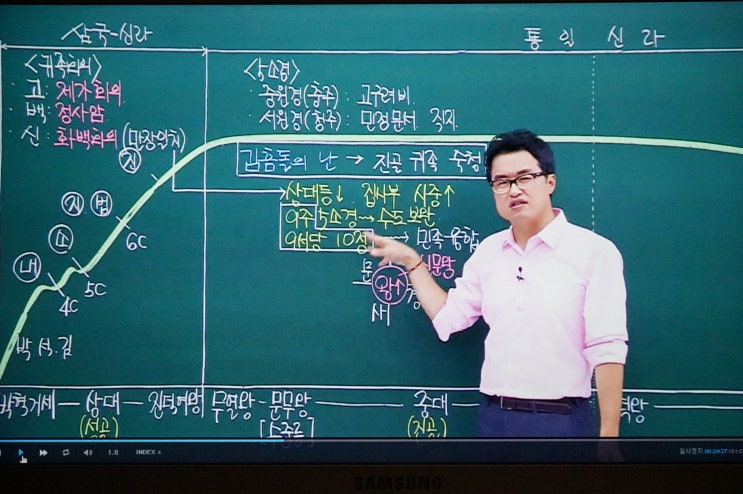 삼국-신라
통일 신라
<귀족회의>
· 고: 제가회의
· 백: 정사암
· 신: 화백회의 (만장일치)
<5소경>
· 중원경(충주): 고구려비
· 서원경(청주): 민정문서. 직지
김흠돌의 난 → 진골 귀족 숙청
상대등↓ 집사부 시중↑
9주 5소경 → 수도 보완
9서당 10정 → 민족 융합
신문왕
왕↑
진
지 법
소
내
6C
5C
4C
박.석.김
박혁거세 — 상대 — 진덕여왕 무열왕 - 문무왕 — 중대
(성골)
[수중릉]
(진골)
1.0
INDEX
일시정지 00:24:27
SAMSUNG